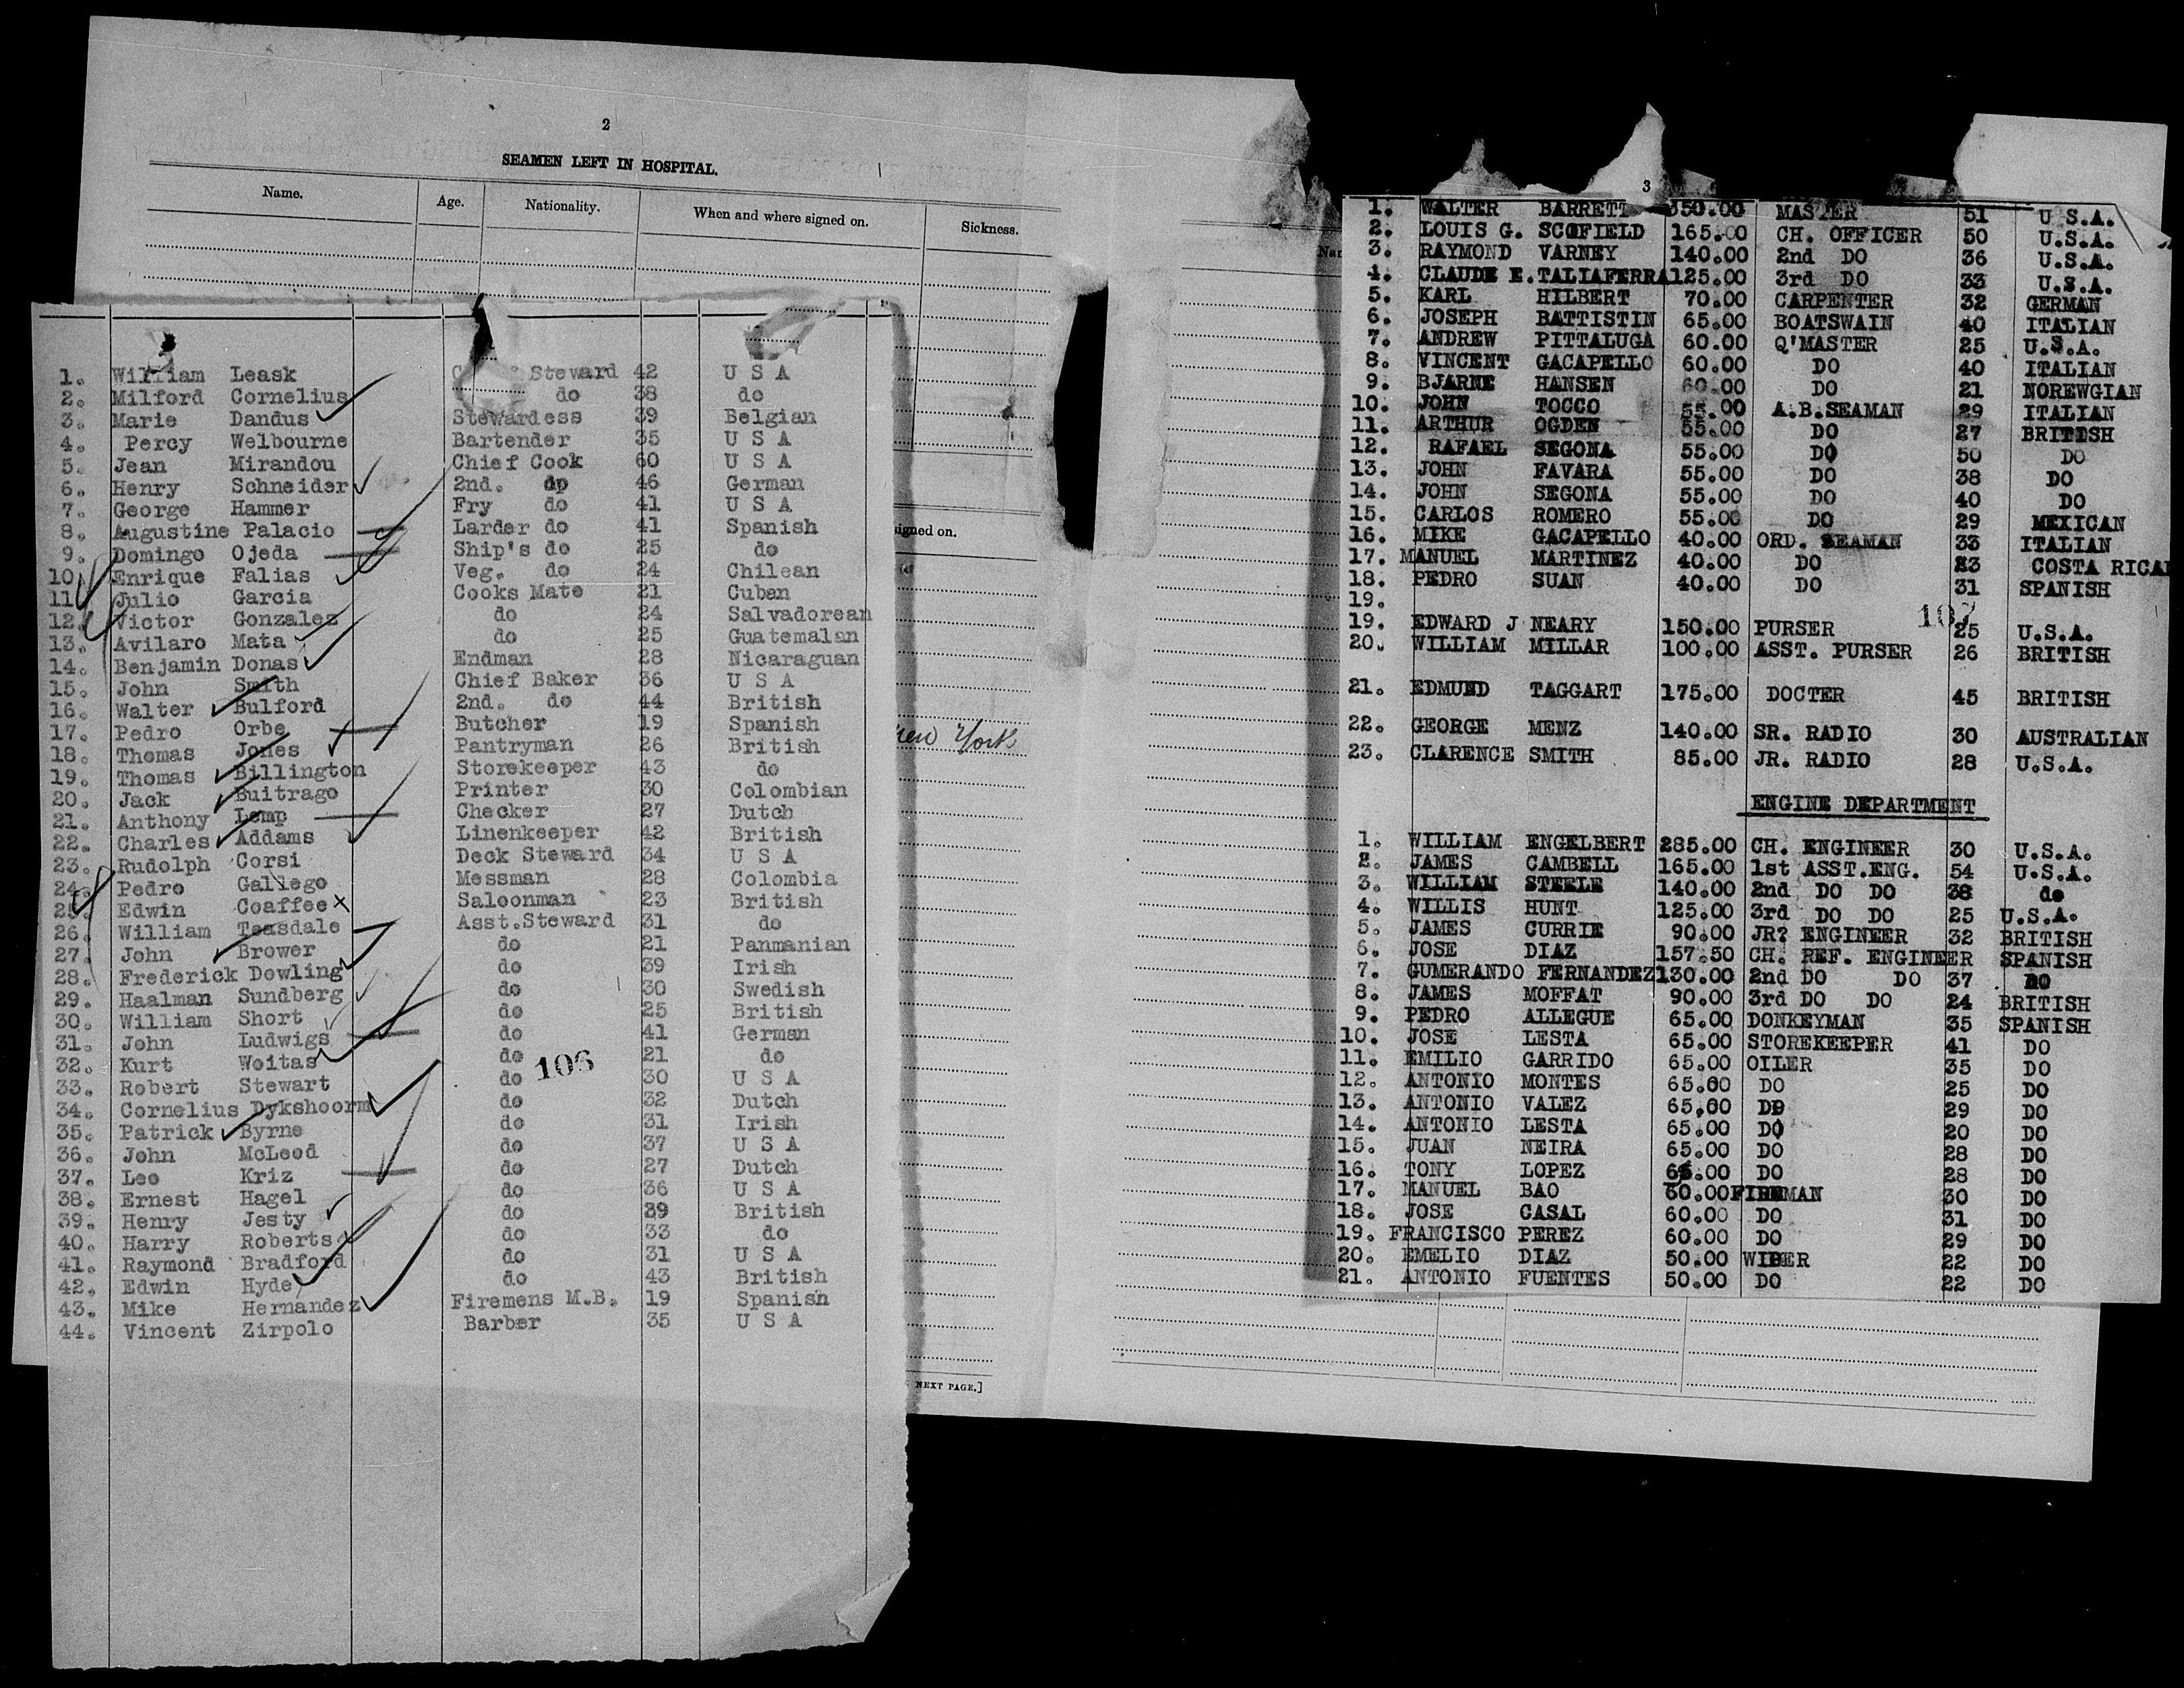 2
SEAMEN LEFT IN HOSPITAL.
Name. Age. Nationality. When and where signed on. Sickness.
1. William Leask Steward 42 U S A
2. Milford Cornelius do 38 do
3. Marie Dandus Stewardess 39 Belgian
4. Percy Welbourne Bartender 35 U S A
5. Jean Mirandou Chief Cook 60 U S A
6. Henry Schneider 2nd. do 46 German
7. George Hammer Fry do 41 U S A
8. Augustine Palacio Larder do 41 Spanish
9. Domingo Ojeda Ship's do 25 do
10. Enrique Falias Veg. do 24 Chilean
11. Julio Garcia Cooks Mate 21 Cuban
12. Victor Gonzalez do 24 Salvadorean
13. Avilaro Mata do 25 Guatemalan
14. Benjamin Donas Endman 28 Nicaraguan
15. John Smith Chief Baker 36 U S A
16. Walter Bulford 2nd. do 44 British
17. Pedro Orbe Butcher 19 Spanish
18. Thomas Jones Pantryman 26 British
19. Thomas Billington Storekeeper 43 do
20. Jack Buitrago Printer 30 Colombian
21. Anthony Lemp Checker 27 Dutch
22. Charles Addams Linenkeeper 42 British
23. Rudolph Corsi Deck Steward 34 U S A
24. Pedro Gallego Messman 28 Colombia
25. Edwin Coaffee Saloonman 23 British
26. William Teasdale Asst.Steward 31 do
27. John Brower do 21 Panmanian
28. Frederick Dowling do 39 Irish
29. Haalman Sundberg do 30 Swedish
30. William Short do 25 British
31. John Ludwigs do 41 German
32. Kurt Woitas do 21 do
106
33. Robert Stewart do 30 U S A
34. Cornelius Dykshoorm do 32 Dutch
35. Patrick Byrne do 31 Irish
36. John McLeod do 37 U S A
37. Leo Kriz do 27 Dutch
38. Ernest Hagel do 36 U S A
39. Henry Jesty do 39 British
40. Harry Roberts do 33 do
41. Raymond Bradford do 31 U S A
42. Edwin Hyde do 43 British
43. Mike Hernandez Firemens M.B. 19 Spanish
44. Vincent Zirpolo Barber 35 U S A
signed on.
New York
NEXT PAGE.]
3
Nar
1. WALTER BARRETT 350.00 MASTER 51 U S.A.
2. LOUIS G. SCOFIELD 165.00 CH. OFFICER 50 U.S.A.
3. RAYMOND VARNEY 140.00 2nd DO 36 U.S.A.
4. CLAUDE E.TALIAFERRA 125.00 3rd DO 33 U.S.A.
5. KARL HILBERT 70.00 CARPENTER 32 GERMAN
6. JOSEPH BATTISTIN 65.00 BOATSWAIN 40 ITALIAN
7. ANDREW PITTALUGA 60.00 Q'MASTER 25 U.S.A.
8. VINCENT GACAPELLO 60.00 DO 40 ITALIAN
9. BJARNE HANSEN 60.00 DO 21 NOREWGIAN
10. JOHN TOCCO 55.00 A.B.SEAMAN 29 ITALIAN
11. ARTHUR OGDEN 55.00 DO 27 BRITISH
12. RAFAEL SEGONA 55.00 DO 50 DO
13. JOHN FAVARA 55.00 DO 38 DO
14. JOHN SEGONA 55.00 DO 40 DO
15. CARLOS ROMERO 55.00 DO 29 MEXICAN
16. MIKE GACAPELLO 40.00 ORD. SEAMAN 33 ITALIAN
17. MANUEL MARTINEZ 40.00 DO 23 COSTA RICAN
18. PEDRO SUAN 40.00 DO 31 SPANISH
19.
107
19. EDWARD J NEARY 150.00 PURSER 25 U.S.A.
20. WILLIAM MILLAR 100.00 ASST. PURSER 26 BRITISH
21. EDMUND TAGGART 175.00 DOCTER 45 BRITISH
22. GEORGE MENZ 140.00 SR. RADIO 30 AUSTRALIAN
23. CLARENCE SMITH 85.00 JR. RADIO 28 U.S.A.
ENGINE DEPARTMENT
1. WILLIAM ENGELBERT 285.00 CH. ENGINEER 30 U.S.A.
2. JAMES CAMBELL 165.00 1st ASST.ENG. 54 U.S.A.
3. WILLIAM STEELE 140.00 2nd DO DO 38 do
4. WILLIS HUNT 125.00 3rd DO DO 25 U.S.A.
5. JAMES CURRIE 90.00 JR? ENGINEER 32 BRITISH
6. JOSE DIAZ 157.50 CH. REF. ENGINEER SPANISH
7. GUMERANDO FERNANDEZ 130.00 2nd DO DO 37 DO
8. JAMES MOFFAT 90.00 3rd DO DO 24 BRITISH
9. PEDRO ALLEGUE 65.00 DONKEYMAN 35 SPANISH
10. JOSE LESTA 65.00 STOREKEEPER 41 DO
11. EMILIO GARRIDO 65.00 OILER 35 DO
12. ANTONIO MONTES 65.00 DO 25 DO
13. ANTONIO VALEZ 65.00 DO 29 DO
14. ANTONIO LESTA 65.00 DO 20 DO
15. JUAN NEIRA 65.00 DO 28 DO
16. TONY LOPEZ 65.00 DO 28 DO
17. MANUEL BAO 60.00 FIREMAN 30 DO
18. JOSE CASAL 60.00 DO 31 DO
19. FRANCISCO PEREZ 60.00 DO 29 DO
20. EMELIO DIAZ 50.00 WIPER 22 DO
21. ANTONIO FUENTES 50.00 DO 22 DO